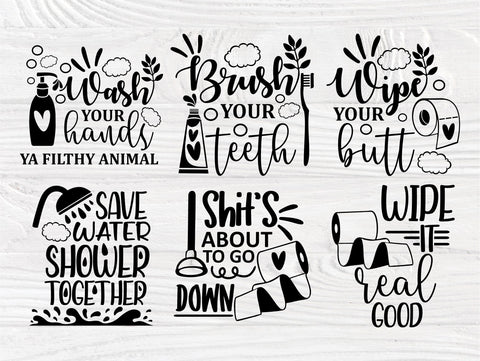 Wash
YOUR
hands
YA FILTHY ANIMAL
Brush
YOUR
teeth
Wipe
YOUR
butt
SAVE
WATER
SHOWER
TOGETHER
Shit's
ABOUT
TO GO
DOWN
WIPE
IT
real
GOOD